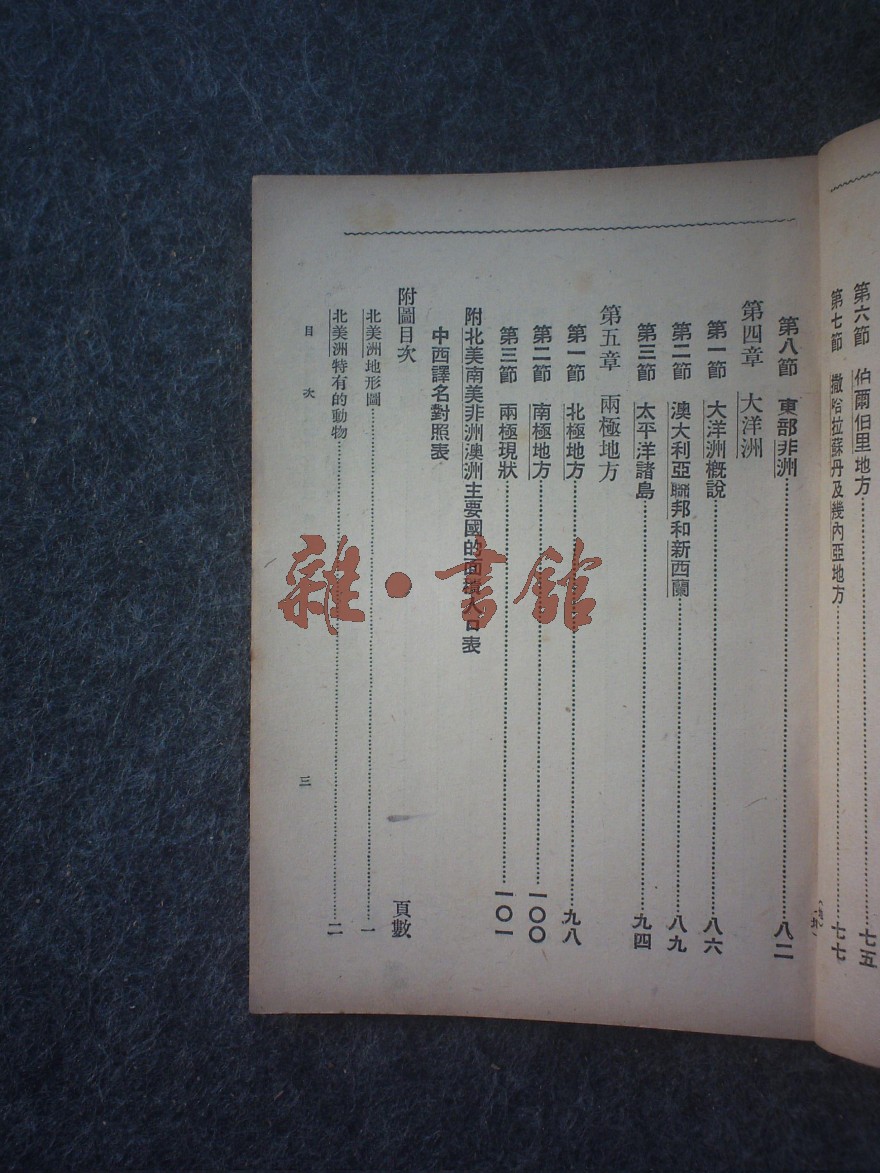 第六節　伯爾伯里地方…………七五
第七節　撒哈拉蘇丹及幾內亞地方…………七七
第八節　東部非洲…………八二
第四章　大洋洲
第一節　大洋洲概說…………八六
第二節　澳大利亞聯邦和新西蘭…………八九
第三節　太平洋諸島…………九四
第五章　兩極地方
第一節　北極地方…………九八
第二節　南極地方…………一〇〇
第三節　兩極現狀…………一〇一
附北美南美非洲澳洲主要國的面積人口表
中西譯名對照表
附圖目次　頁數
北美洲地形圖…………一
北美洲特有的動物…………二
目次　三
雜·書館